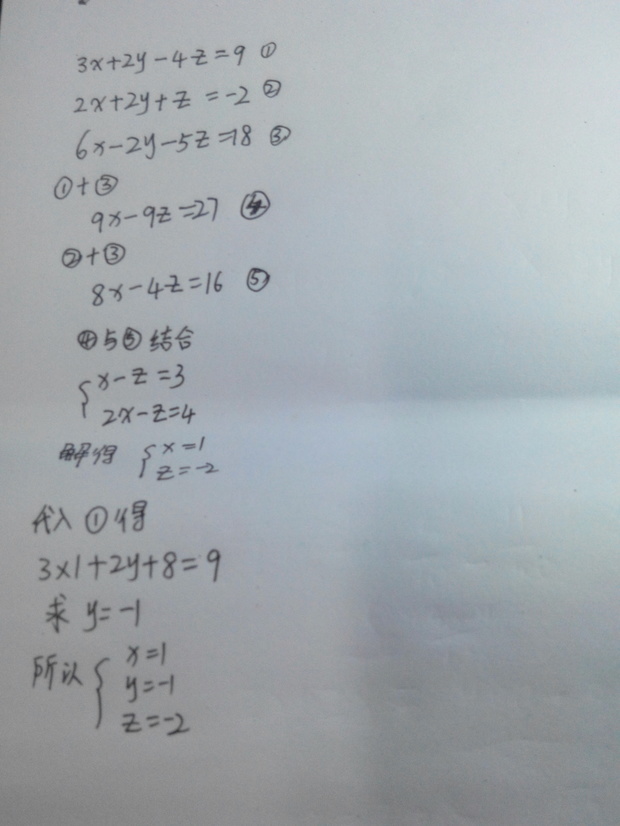 3x+2y-4z=9 ①
2x+2y+z=-2 ②
6x-2y-5z=18 ③
①+③
9x-9z=27 ④
②+③
8x-4z=16 ⑤
④与⑤结合
{x-z=3
2x-z=4
解得 {x=1
z=-2
代入①得
3×1+2y+8=9
求 y=-1
所以 {x=1
y=-1
z=-2